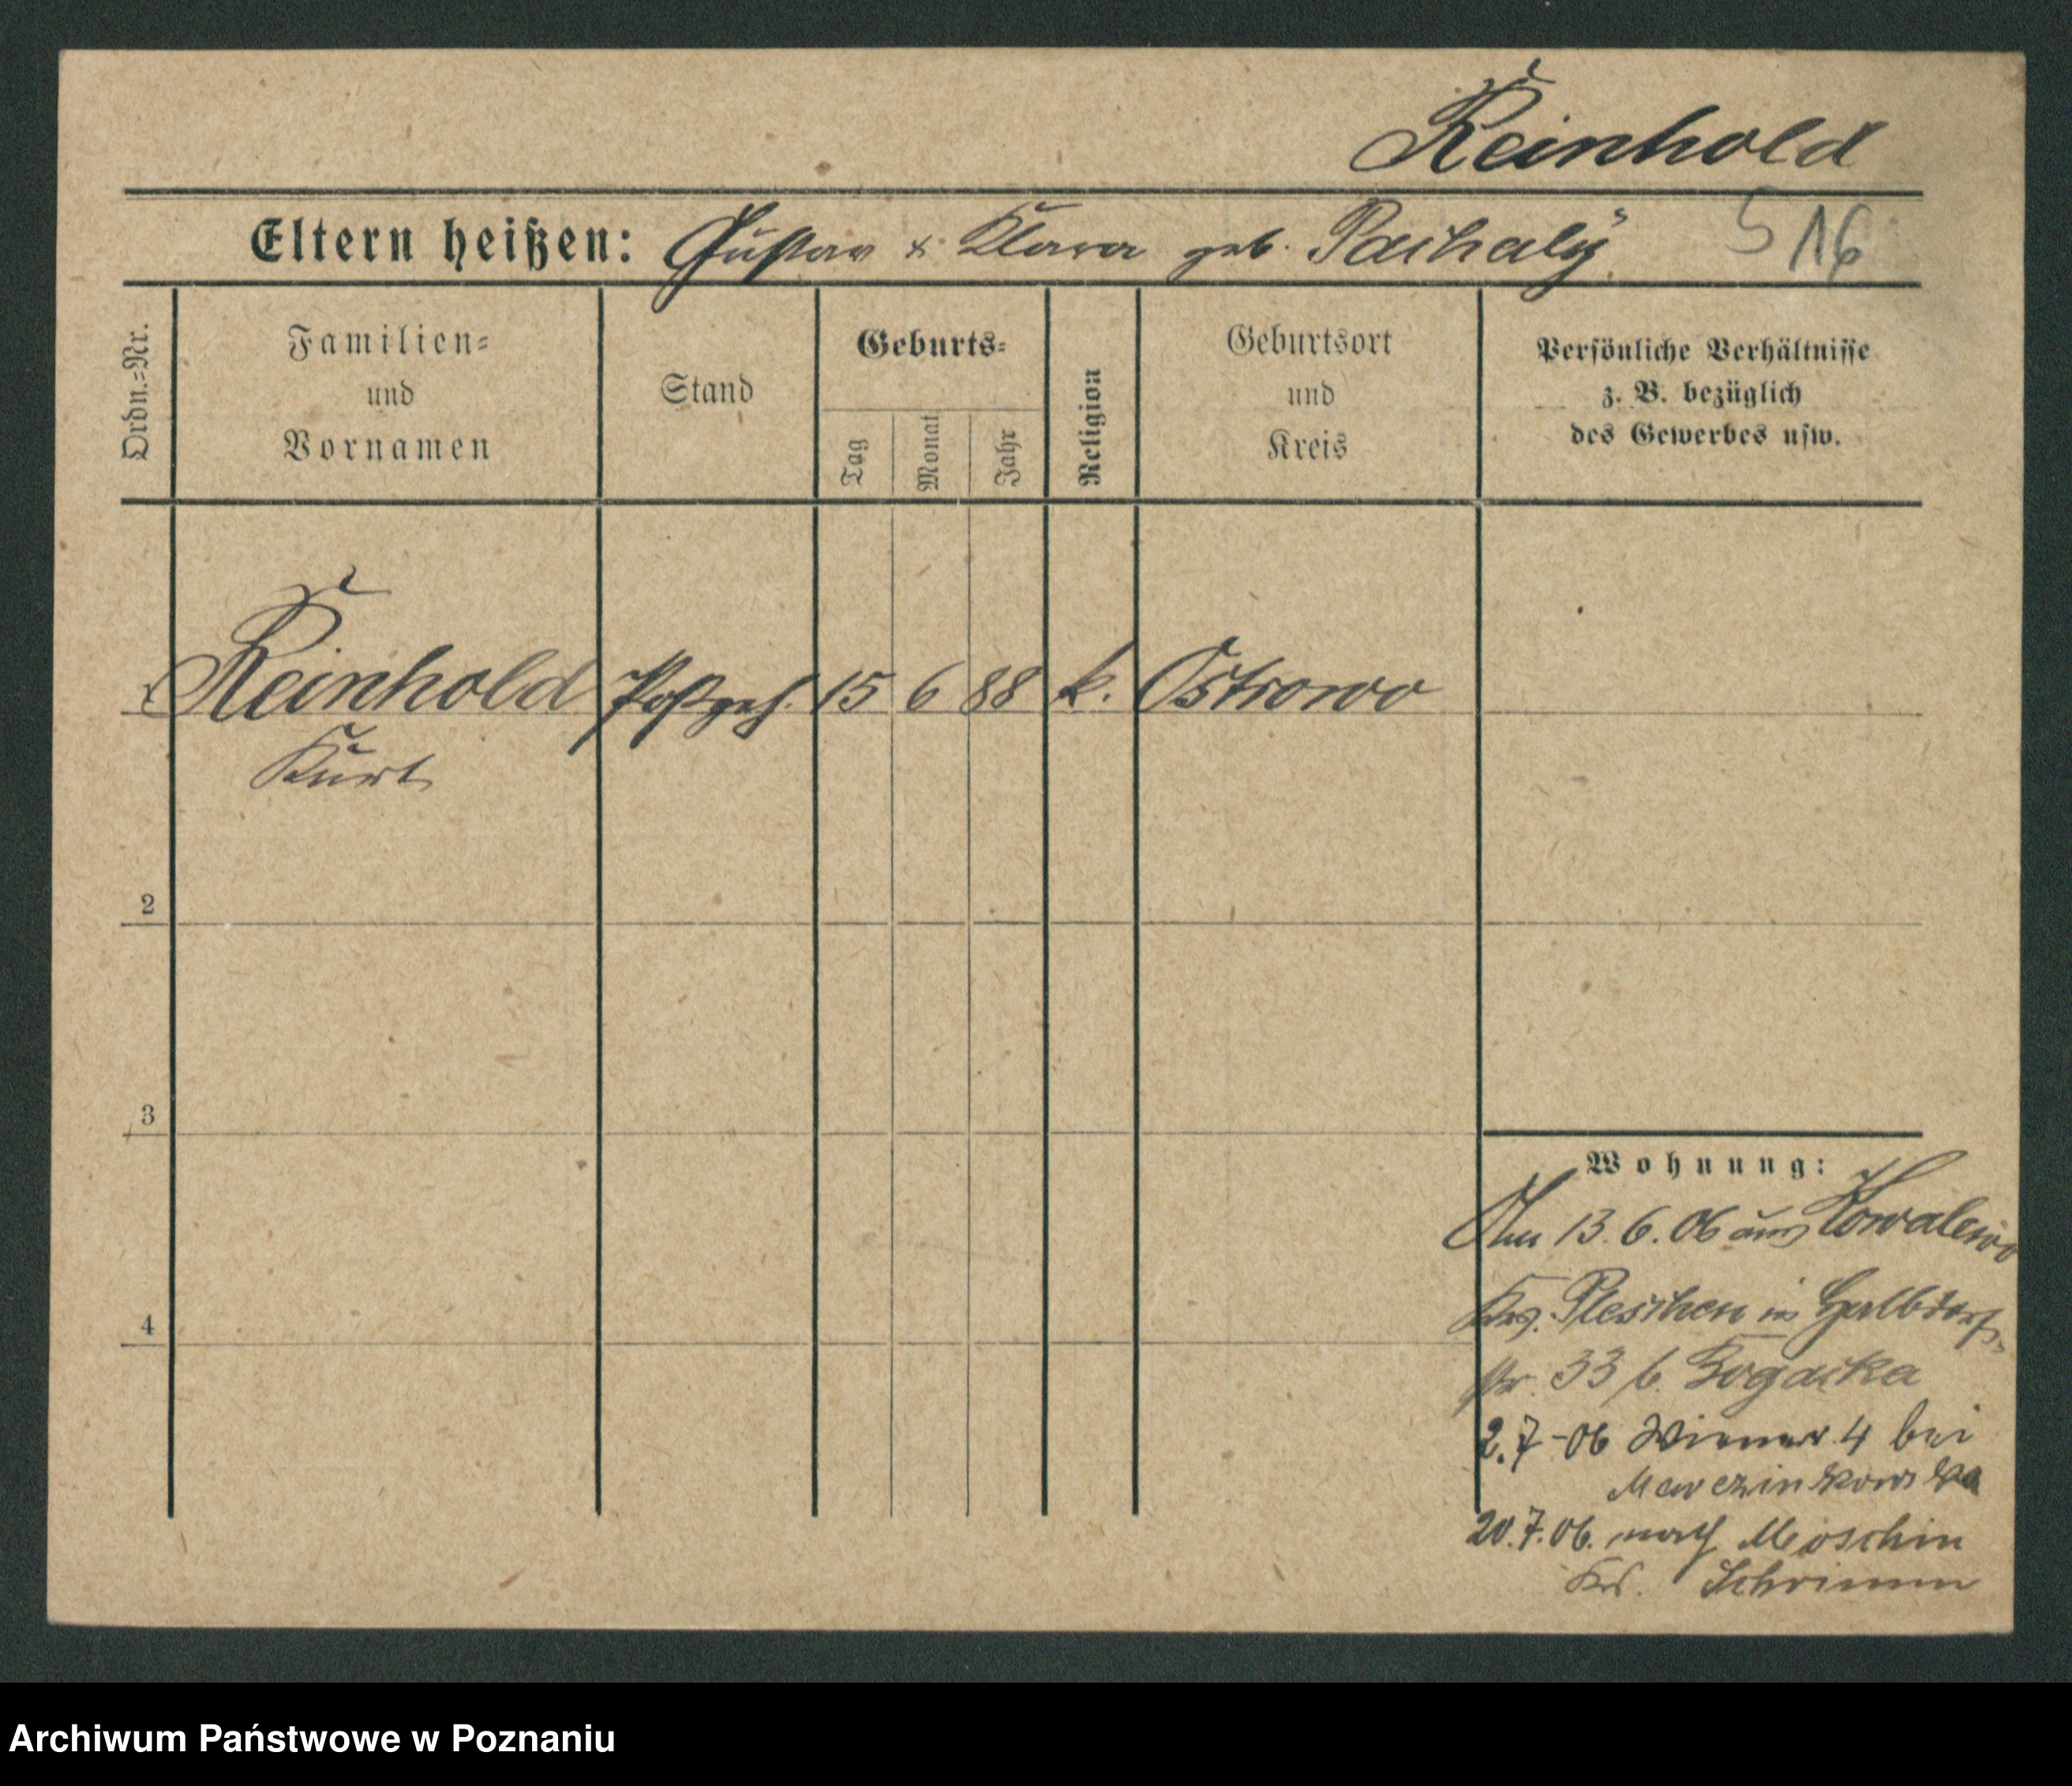 Reinhold
Eltern heißen: Gustav & Klara geb. Paschaly
516
Ordn.=Nr.
Familien=
und
Vornamen
Stand
Geburts=
Tag
Monat
Jahr
Religion
Geburtsort
und
Kreis
Persönliche Verhältnisse
z. B. bezüglich
des Gewerbes usw.
1 Reinhold Postgeh. 15 6 88 k. Ostrowo
Kurt
2
3
4
Wohnung:
Am 13.6.06 aus Kowalewo
Krs. Pleschen in Halbdorf-
str. 33 b.
2.7-06 Wiener 4 bei
Marczinkowska
20.7.06. nach Moschin
Krs. Schrimm
Archiwum Państwowe w Poznaniu